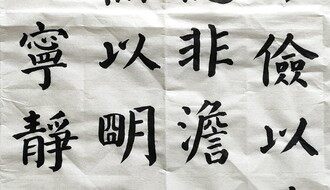 儉以
非澹
以朙
寧靜